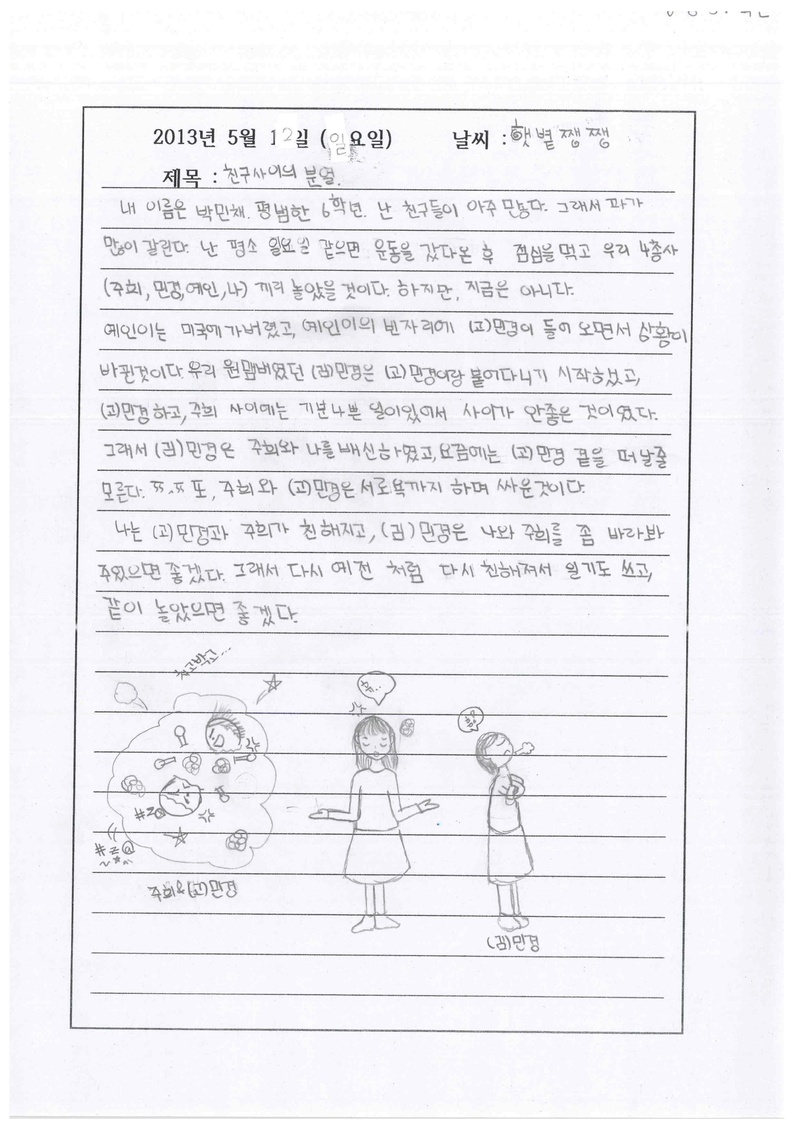 2013년 5월 12일 (일요일) 날씨 : 햇볕쨍쨍
제목 : 친구사이의 분열.
내 이름은 박민채. 평범한 6학년. 난 친구들이 아주 많다. 그래서 파가
많이 갈린다. 난 평소 일요일 같으면 운동을 갔다온 후 점심을 먹고 우리 4총사
(주희, 민경, 예인, 나) 끼리 놀았을것이다. 하지만, 지금은 아니다.
예인이는 미국에가버렸고, 예인이의 빈자리에 (고)민경이 들어 오면서 상황이
바뀐것이다. 우리 원멤버였던 (김)민경은 (고)민경이랑 붙어다니기 시작하였고,
(고)민경하고, 주희 사이에는 기분나쁜 일이있어서 사이가 안좋은 것이였다.
그래서 (김)민경은 주희와 나를 배신하였고, 요즘에는 (고)민경 곁을 떠날줄
모른다. ㅠ.ㅠ 또, 주희와 (고)민경은 서로욕까지 하며 싸운것이다.
나는 (고)민경과 주희가 친해지고, (김)민경은 나와 주희를 좀 바라봐
주었으면 좋겠다. 그래서 다시 예전 처럼 다시 친해져서 일기도 쓰고,
같이 놀았으면 좋겠다.
치고박고...
휴..
흥
#z@
#z@
주희&(고)민경
(김)민경